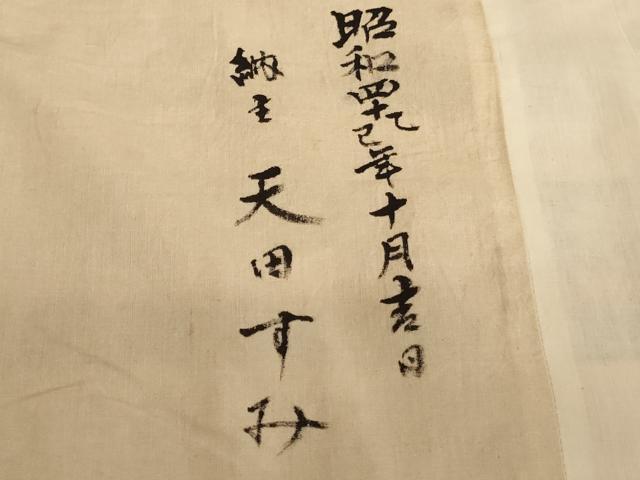 昭和四十乙巳年十月吉日
納主 天田すみ